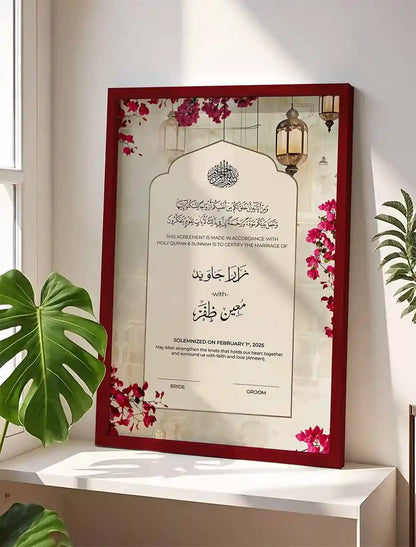 وَمِنْ آيَاتِهِ أَنْ خَلَقَ لَكُمْ مِنْ أَنْفُسِكُمْ أَزْوَاجًا لِتَسْكُنُوا إِلَيْهَا
وَجَعَلَ بَيْنَكُمْ مَوَدَّةً وَرَحْمَةً إِنَّ فِي ذَلِكَ لَآيَاتٍ لِقَوْمٍ يَتَفَكَّرُونَ
THIS AGREEMENT IS MADE IN ACCORDANCE WITH
HOLY QURAN & SUNNAH IS TO CERTIFY THE MARRIAGE OF
زارا جاوید
-with-
مُعین ظفر
SOLEMNIZED ON FEBRUARY 1st, 2025
May Allah strengthen the knots that holds our heart together
and surround us with faith and love (Ameen).
BRIDE GROOM